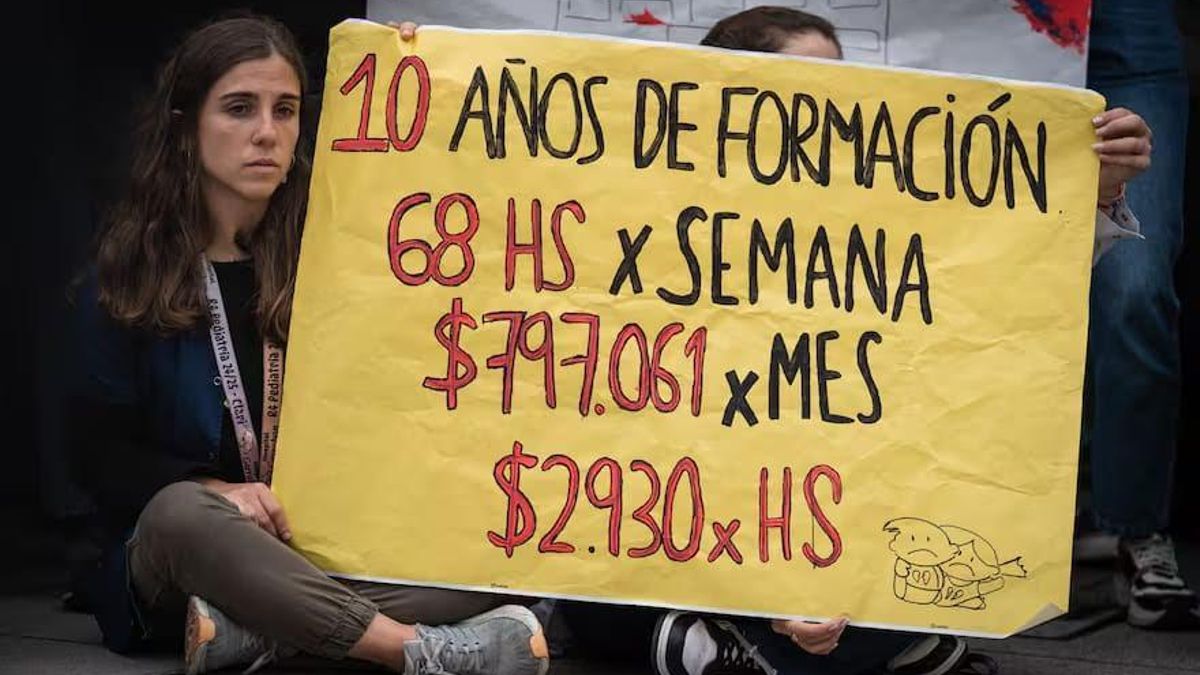 10 AÑOS DE FORMACIÓN
68 HS x SEMANA
$797.061 x MES
$2.930 x HS
R4 Pediatría 24/25 - Clari
R4 Pediatría 2